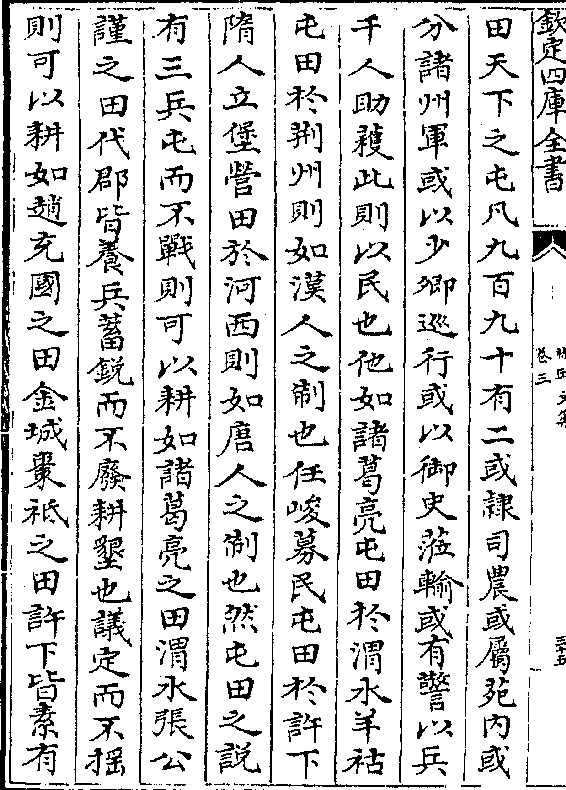 欽定四庫全書
卷三
田天下之屯凡九百九十有二或隷司農或屬苑内或
分諸州軍或以少卿巡行或以御史蒞輸或有警以兵
千人助穫此則以民也他如諸葛亮屯田於渭水羊祜
屯田於荆州則如漢人之制也任峻募民屯田於許下
隋人立堡營田於河西則如唐人之制也然屯田之說
有三兵屯而不戰則可以耕如諸葛亮之田渭水張公
謹之田代郡皆養兵蓄鋭而不廢耕墾也議定而不揺
則可以耕如趙充國之田金城棗祗之田許下皆素有